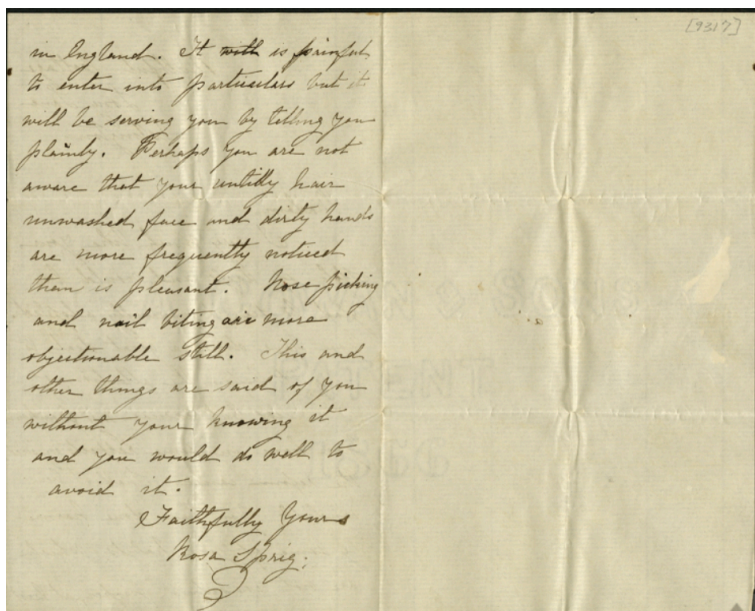 [9317]
in England. It with is painful
to enter into particulars but it
will be serving you by telling you
plainly. Perhaps you are not
aware that your untidy hair
unwashed face and dirty hands
are more frequently noticed
than is pleasant. Nose picking
and nail biting are more
objectionable still. This and
other things are said of you
without your knowing it
and you would do well to
avoid it.
Faithfully Yours
Rosa Sprig.